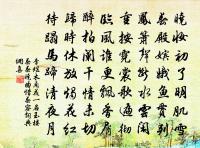 晚妝初了明肌雪
春殿嬪娥魚貫列
鳳簫聲斷水雲閒
重按霓裳歌遍徹
臨風誰更飄香屑
醉拍闌干情未切
歸時休放燭花紅
待踏馬蹄清夜月
李煜木蘭花一名玉樓